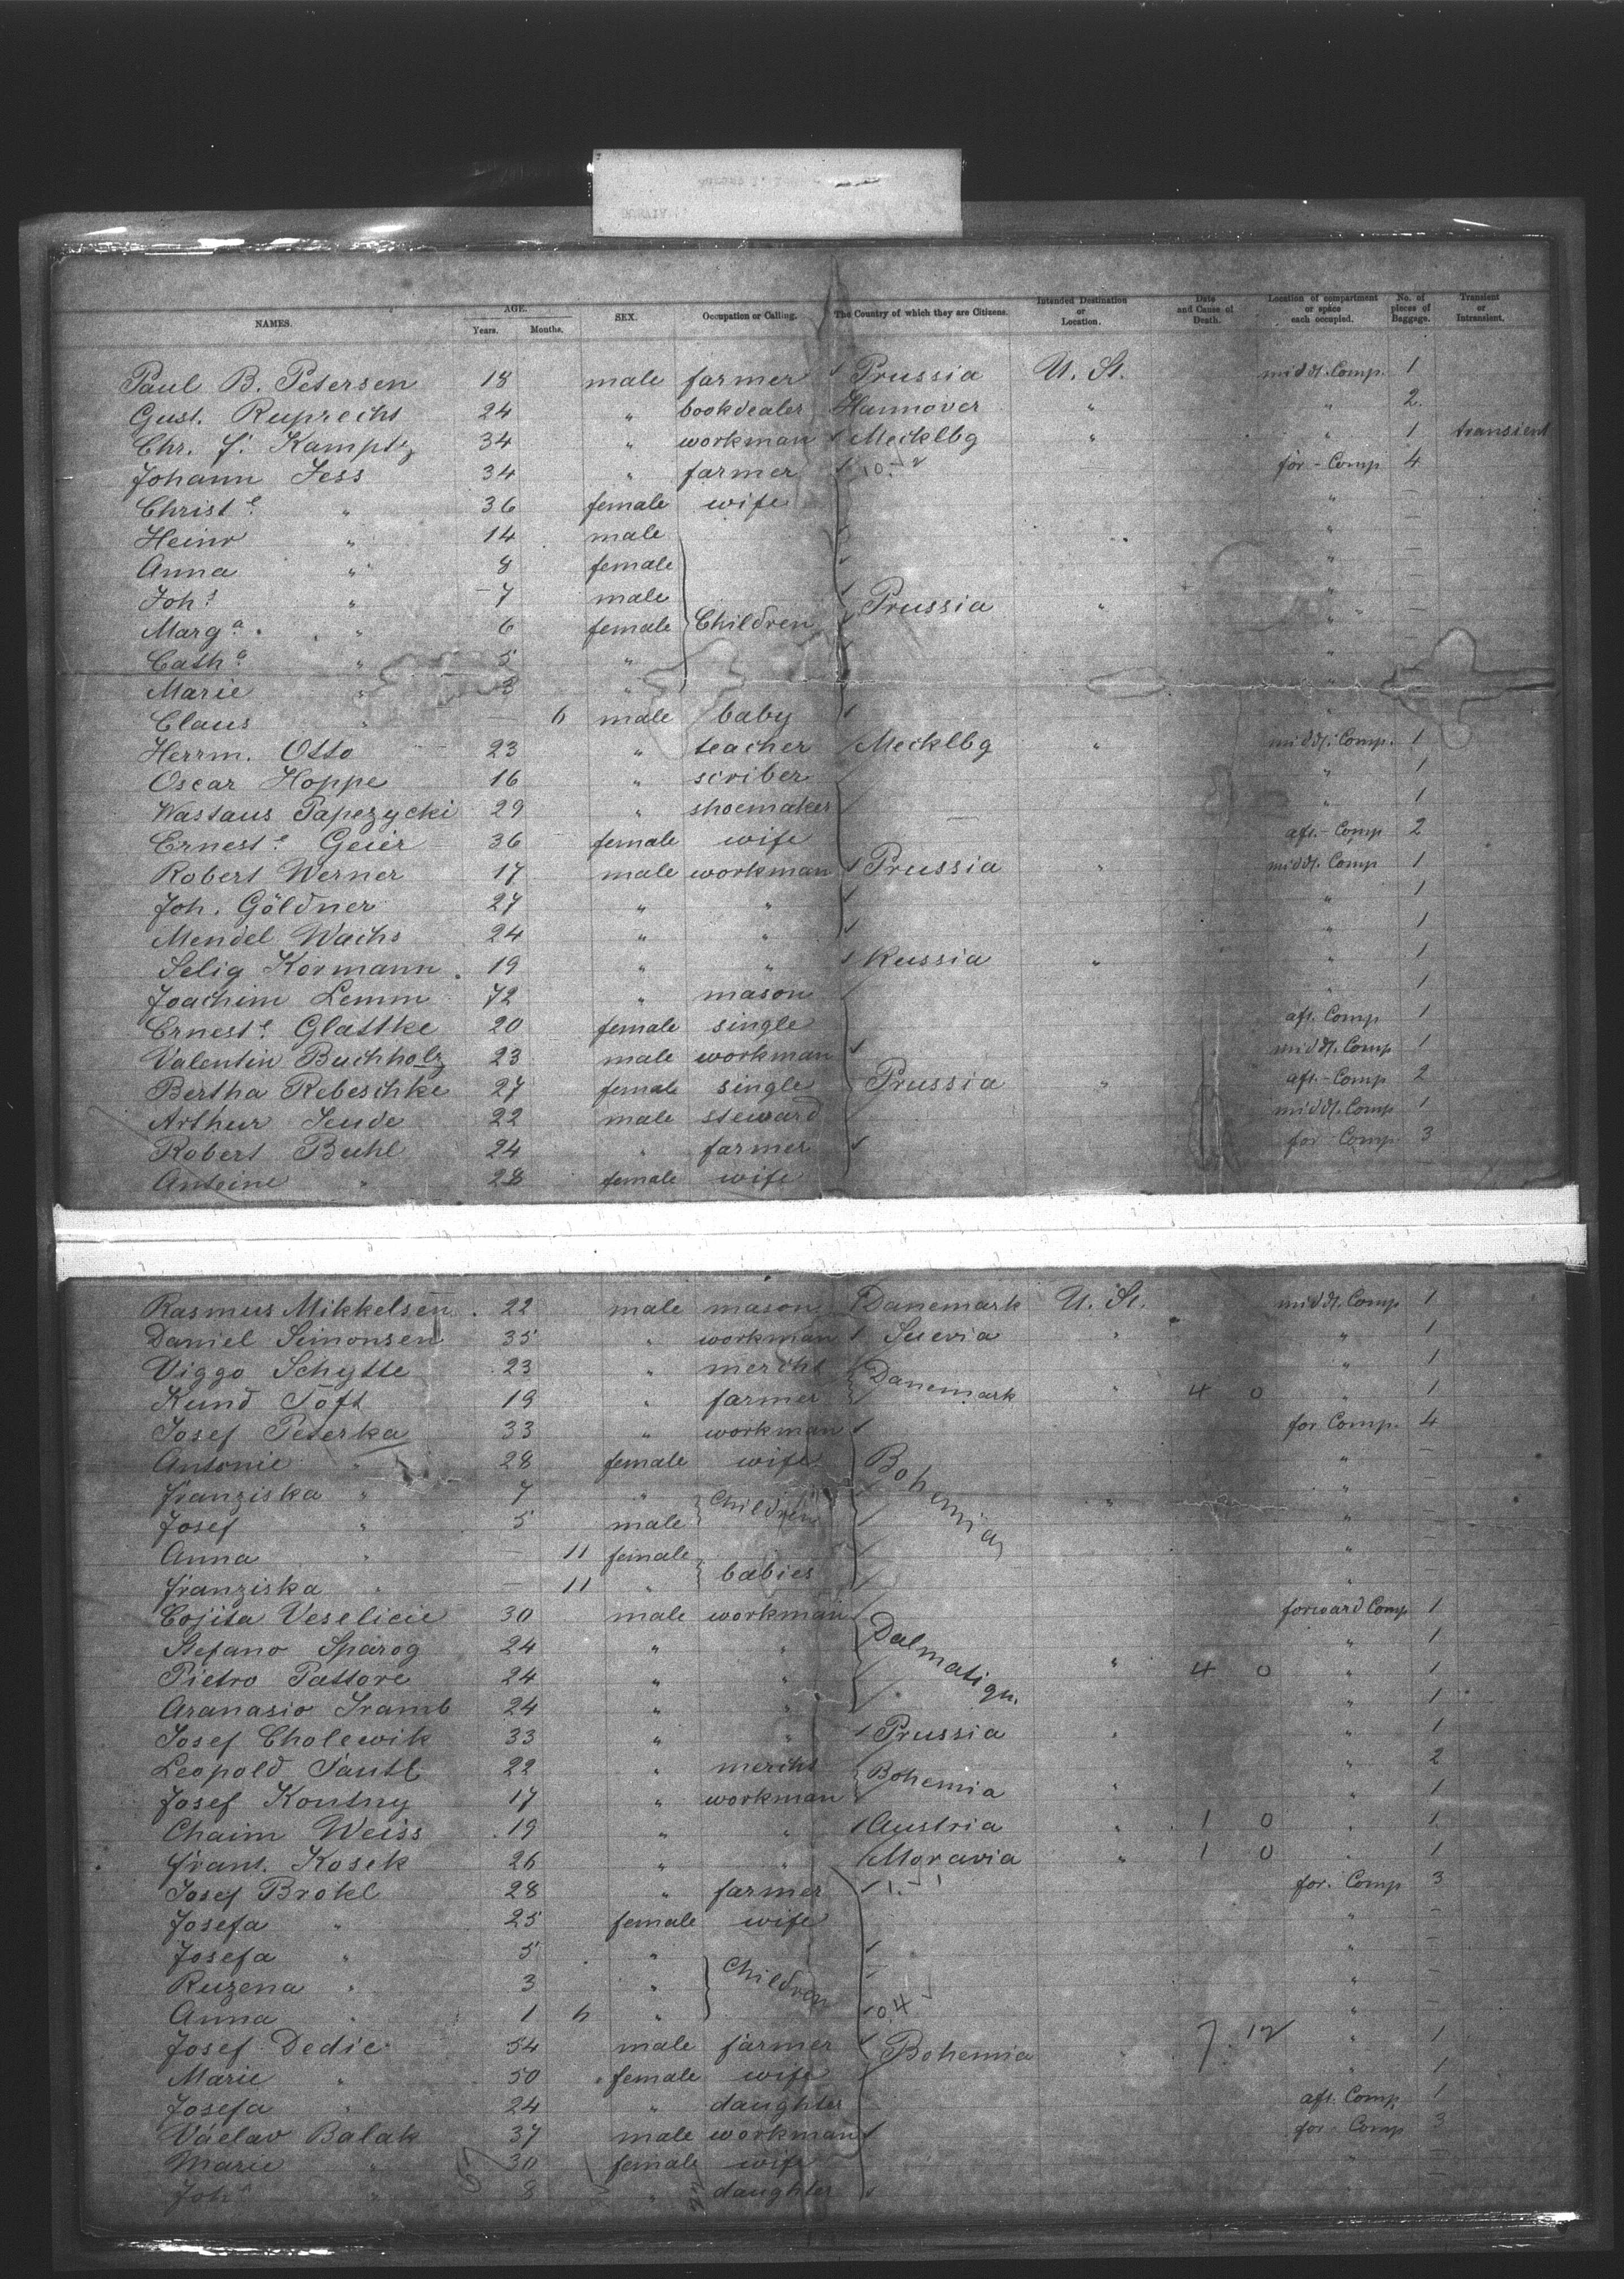 NAMES. AGE. Years. Months. SEX. Occupation or Calling. The Country of which they are Citizens. Intended Destination or Location. Date and Cause of Death. Location of compartment or space each occupied. No. of pieces of Baggage. Transient or Intransient.
Paul B. Petersen 18 male farmer Prussia U. St. middl. Comp. 1
Gust. Ruprecht 24 " bookdealer Hannover " " 2.
Chr. f. Kamptz 34 " workman Mecklbg " " 1 transient
Johann Jess 34 " farmer for-Comp 4
Christe " 36 female wife " —
Heinr " 14 male " —
Anna " 8 female " —
Johs " 7 male Prussia " " —
Marga " 6 female Children " —
Catha " 5 " "
Marie " 3 " "
Claus " — 6 male baby "
Herrm. Otto 23 " teacher Mecklbg " middl. Comp. 1
Oscar Hoppe 16 " scriber " 1
Wastaus Papezycki 29 " shoemaker " 1
Erneste Geier 36 female wife aft.-Comp 2
Robert Werner 17 male workman Prussia " middl. Comp 1
Joh. Göldner 27 " " " 1
Mendel Wachs 24 " " " 1
Selig Kormann 19 " " Russia " " 1
Joachim Lemm 72 " mason " 1
Erneste Glattke 20 female single aft. Comp 1
Valentin Buchholz 23 male workman middl. Comp 1
Bertha Rebeschke 27 female single Prussia " aft.-Comp 2
Arthur Jeude 22 male steward middl. Comp 1
Robert Buhl 24 " farmer for Comp 3
Anteine " 28 female wife
Rasmus Mikkelsen 22 male mason Danemark U. St. middl. Comp 1
Daniel Simonsen 35 " workman Suevia " " 1
Viggo Schytte 23 " mercht " 1
Kund Toft 19 " farmer Danemark " 4 0 " 1
Josef Peterka 33 " workman for Comp. 4
Antonie " 28 female wife Bohemia " —
Franziska " 7 " Children " "
Josef " 5 male " —
Anna " — 11 female " —
Franziska " — 11 " babies " —
Cojita Veselicie 30 male workman forward Comp 1
Stefano Sparog 24 " " Dalmatign. " 1
Pietro Pattore 24 " " " 4 0 " 1
Aranasio Iramb 24 " " " 1
Josef Cholewik 33 " " Prussia " " 1
Leopold Tautl 22 " mercht Bohemia " 2
Josef Koutny 17 " workman " " 1
Chaim Weiss 19 " " Austria " 1 0 " 1
Frant. Kosek 26 " " Moravia " 1 0 " 1
Josef Brokl 28 " farmer for. Comp 3
Josefa " 25 female wife " —
Josefa " 5 " " —
Ruzena " 3 " Children " —
Anna " 1 6 " 04 " —
Josef Dedic 54 male farmer Bohemia " 7. 12 " 1
Marie " 50 female wife " 1
Josefa " 24 " daughter aft. Comp. 1
Václav Balak 37 male workman for-Comp 3
Marie " 30 female wife " —
Joha " 8 " daughter